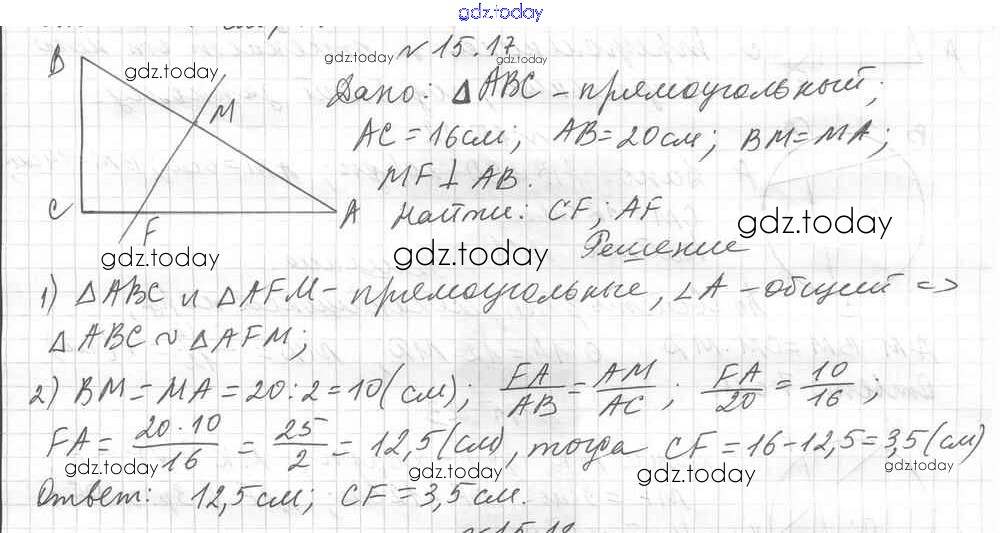 gdz.today
№ 15.17
gdz.today
gdz.today
gdz.today
B
M
C
A
F
Дано: △ABC - прямоугольный;
AC = 16см; AB = 20см; BM = MA;
MF ⊥ AB.
Найти: CF; AF
gdz.today
gdz.today
gdz.today
Решение
1) △ABC и △AFM - прямоугольные, ∠A - общий =>
△ABC ∾ △AFM;
2) BM = MA = 20 : 2 = 10 (см); FA/AB = AM/AC; FA/20 = 10/16;
FA = 20·10/16 = 25/2 = 12,5 (см), тогда CF = 16 - 12,5 = 3,5 (см)
gdz.today
gdz.today
gdz.today
gdz.today
Ответ: 12,5 см; CF = 3,5 см.
№15.18